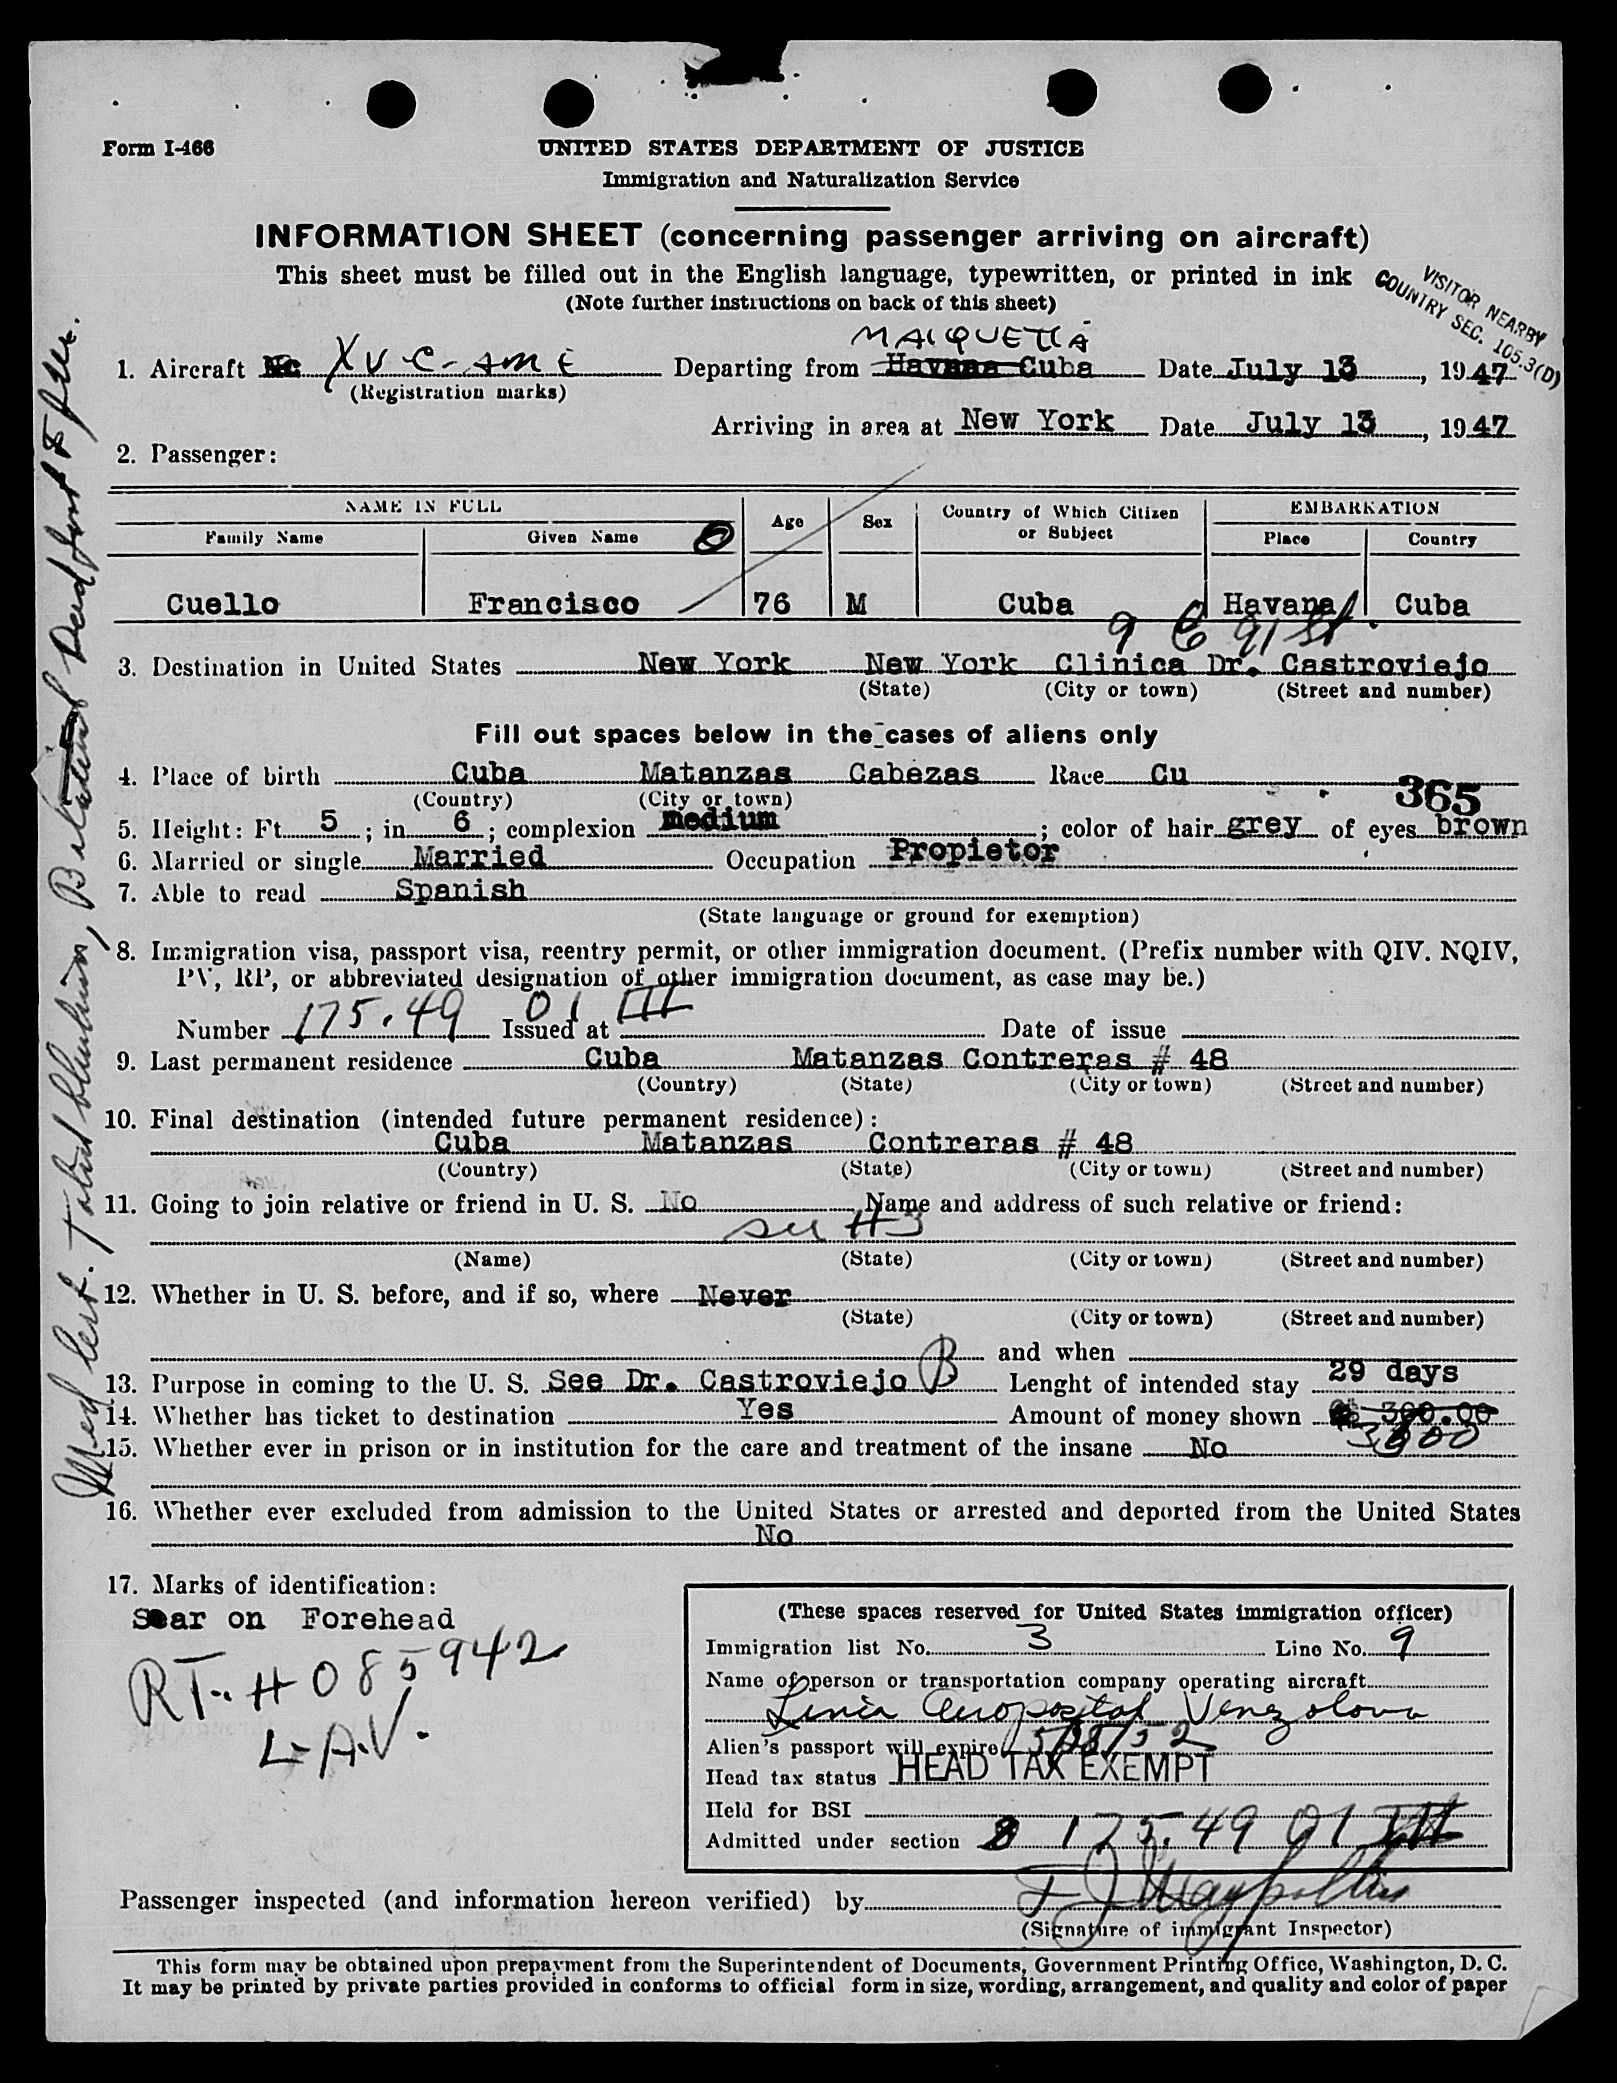 Form I-466
UNITED STATES DEPARTMENT OF JUSTICE
Immigration and Naturalization Service
INFORMATION SHEET (concerning passenger arriving on aircraft)
This sheet must be filled out in the English language, typewritten, or printed in ink
(Note further instructions on back of this sheet)
VISITOR NEARBY
COUNTRY SEC. 105.3(D)
MAIQUETIA
1. Aircraft XVC-AME Departing from Havana Cuba Date July 13, 1947
(Registration marks)
Arriving in area at New York Date July 13, 1947
2. Passenger:
NAME IN FULL Age Sex Country of Which Citizen or Subject EMBARKATION
Family Name Given Name Place Country
Cuello Francisco 76 M Cuba Havana Cuba
9 E 91 St.
3. Destination in United States New York New York Clinica Dr. Castroviejo
(State) (City or town) (Street and number)
Fill out spaces below in the cases of aliens only
4. Place of birth Cuba Matanzas Cabezas Race Cu
(Country) (City or town)
365
5. Height: Ft. 5; in. 6; complexion medium; color of hair grey of eyes brown
6. Married or single Married Occupation Propietor
7. Able to read Spanish
(State language or ground for exemption)
8. Immigration visa, passport visa, reentry permit, or other immigration document. (Prefix number with QIV. NQIV,
PV, RP, or abbreviated designation of other immigration document, as case may be.)
Number 175.49 01 III Issued at Date of issue
9. Last permanent residence Cuba Matanzas Contreras # 48
(Country) (State) (City or town) (Street and number)
10. Final destination (intended future permanent residence):
Cuba Matanzas Contreras # 48
(Country) (State) (City or town) (Street and number)
11. Going to join relative or friend in U. S. No Name and address of such relative or friend:
see #3
(Name) (State) (City or town) (Street and number)
12. Whether in U. S. before, and if so, where Never
(State) (City or town) (Street and number)
and when
13. Purpose in coming to the U. S. See Dr. Castroviejo B Lenght of intended stay 29 days
14. Whether has ticket to destination Yes Amount of money shown 300.00
3000
15. Whether ever in prison or in institution for the care and treatment of the insane No
16. Whether ever excluded from admission to the United States or arrested and deported from the United States
No
17. Marks of identification:
Scar on Forehead
RT. # 085942
L.A.V.
(These spaces reserved for United States immigration officer)
Immigration list No. 3 Line No. 9
Name of person or transportation company operating aircraft
Linea Aeropostal Venezolana
Alien's passport will expire
Head tax status HEAD TAX EXEMPT
Held for BSI
Admitted under section 175.49 01 III
Passenger inspected (and information hereon verified) by
(Signature of immigrant Inspector)
This form may be obtained upon prepayment from the Superintendent of Documents, Government Printing Office, Washington, D. C.
It may be printed by private parties provided in conforms to official form in size, wording, arrangement, and quality and color of paper
Med Cert. Total blindness, Bilateral